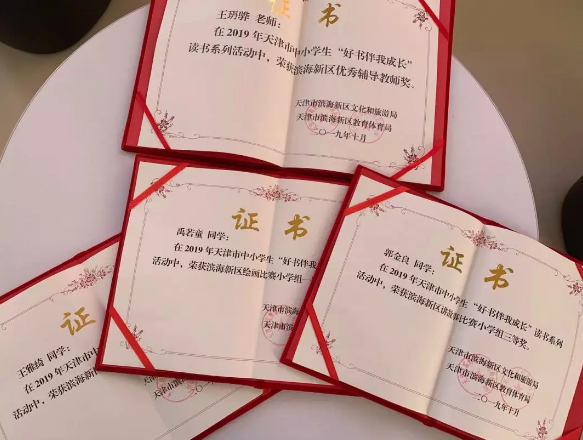 证书
王玥骅 老师：
在2019年天津市中小学生“好书伴我成长”
读书系列活动中，荣获滨海新区优秀辅导教师奖。
天津市滨海新区文化和旅游局
天津市滨海新区教育体育局
二〇一九年十月
证书
禹若童 同学：
在2019年天津市中小学生“好书伴我
活动中，荣获滨海新区绘画比赛小学组一
天津市滨海
天津市滨
证书
郭金良 同学：
在2019年天津市中小学生“好书伴我成长”读书系列
活动中，荣获滨海新区演讲比赛小学组三等奖。
天津市滨海新区文化和旅游局
天津市滨海新区教育体育局
二〇一九年十月
证
王雅绮 同学：
在2019年天津市中
活动中，荣获滨海新
天津市滨
天津市
二